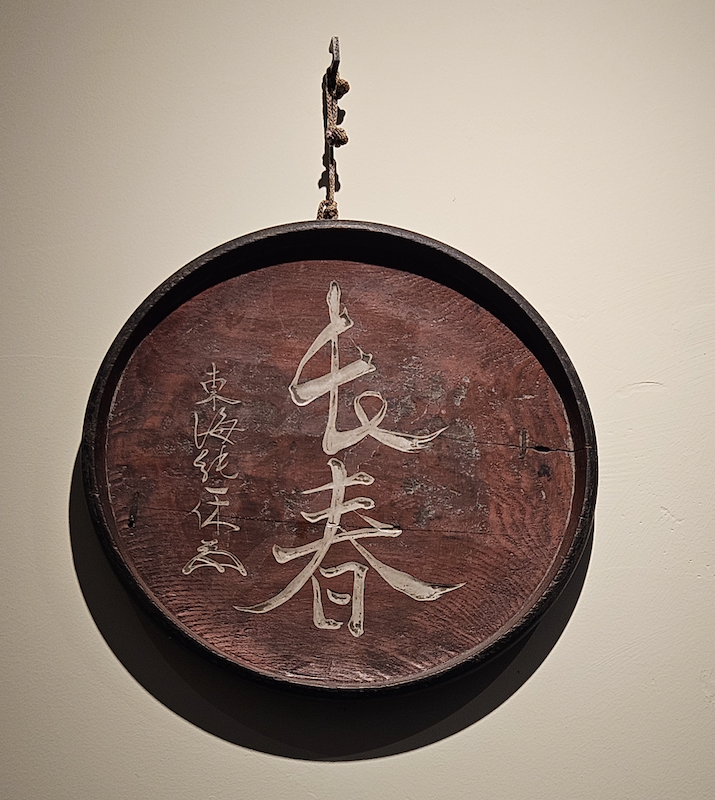 長春
東海純一休